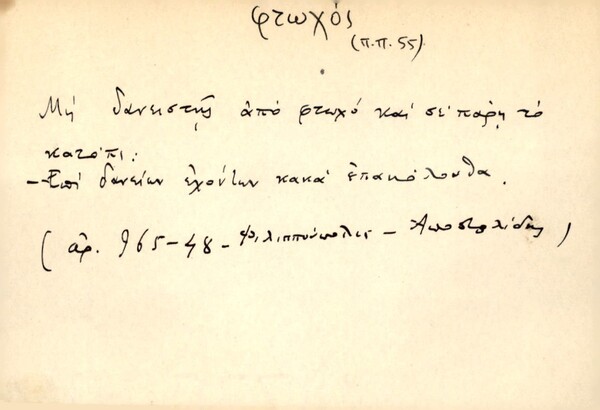 φτωχός
(π.π. 55)
Μή δανειστῇς ἀπό φτωχό καί σέ πάρῃ τό
κατόπι:
- Ἐπί δανείων ἐχόντων κακά ἐπακόλουθα.
( ἀρ. 965-48 - Φιλιππούπολις - Ἀποστολίδης )